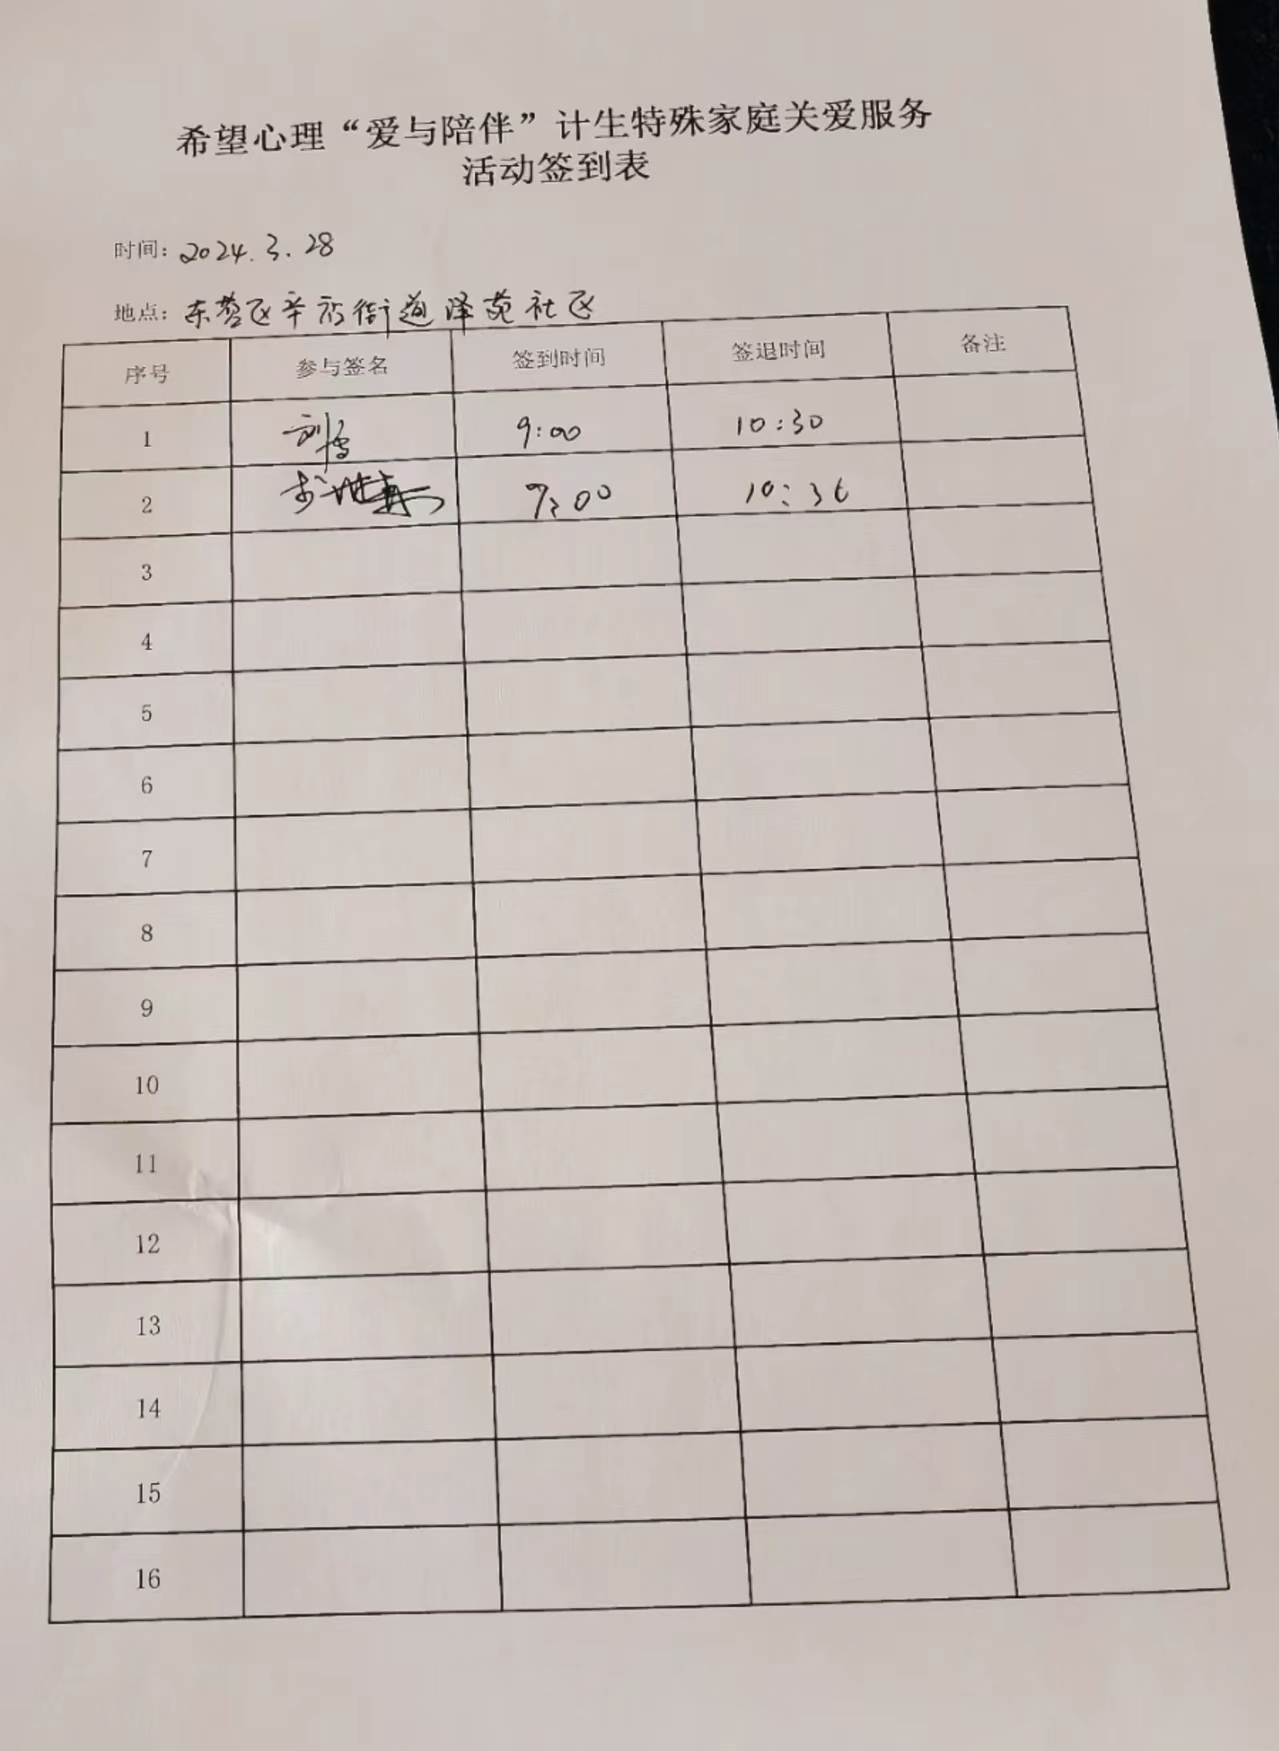 希望心理“爱与陪伴”计生特殊家庭关爱服务
活动签到表
时间：2024.3.28
地点：东营区辛店街道泽苑社区
序号 参与签名 签到时间 签退时间 备注
1 刘 9:00 10:30
2 9:00 10:30
3
4
5
6
7
8
9
10
11
12
13
14
15
16